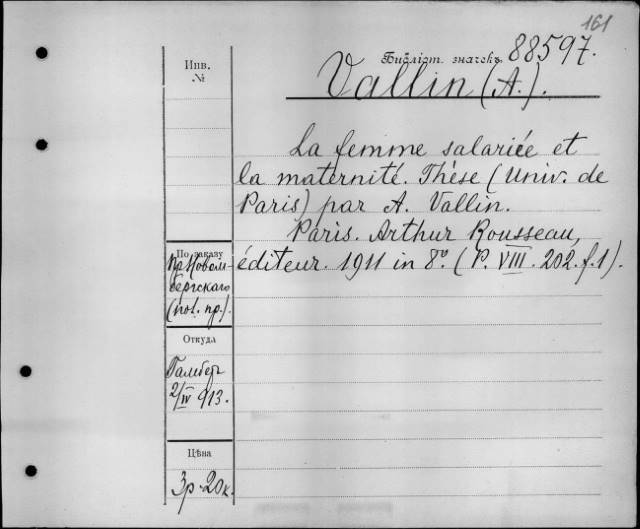 161
Библіот. значекъ 88597.
Vallin (A.).
Инв.
№
La femme salariée et
la maternité. Thèse (Univ. de
Paris) par A. Vallin.
Paris. Arthur Rousseau,
éditeur. 1911 in 8º. (P. VIII. 202. f. 1).
По заказу
Пр. Новом-
бергскаго
(пол. пр.).
Откуда
Гамбер
2/IV 913.
Цѣна
3 р. 20 к.